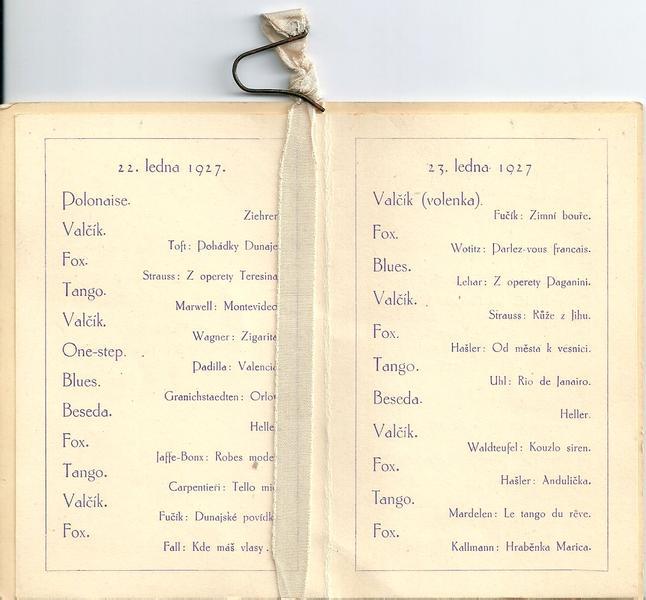 22. ledna 1927.
Polonaise.
Ziehrer
Valčík.
Toft: Pohádky Dunaje
Fox.
Strauss: Z operety Teresina
Tango.
Marwell: Montevideo
Valčík.
Wagner: Zigarita
One-step.
Padilla: Valencia
Blues.
Granichstaedten: Orlo
Beseda.
Helle
Fox.
Jaffe-Bonx: Robes mode
Tango.
Carpentieri: Tello mi
Valčík.
Fučík: Dunajské povídk
Fox.
Fall: Kde máš vlasy.
23. ledna 1927
Valčík (volenka).
Fučík: Zimní bouře.
Fox.
Wotitz: Parlez-vous francais.
Blues.
Lehar: Z operety Paganini.
Valčík.
Strauss: Růže z Jihu.
Fox.
Hašler: Od města k vesnici.
Tango.
Uhl: Rio de Janairo.
Beseda.
Heller.
Valčík.
Waldteufel: Kouzlo siren.
Fox.
Hašler: Andulička.
Tango.
Mardelen: Le tango du rêve.
Fox.
Kallmann: Hraběnka Marica.